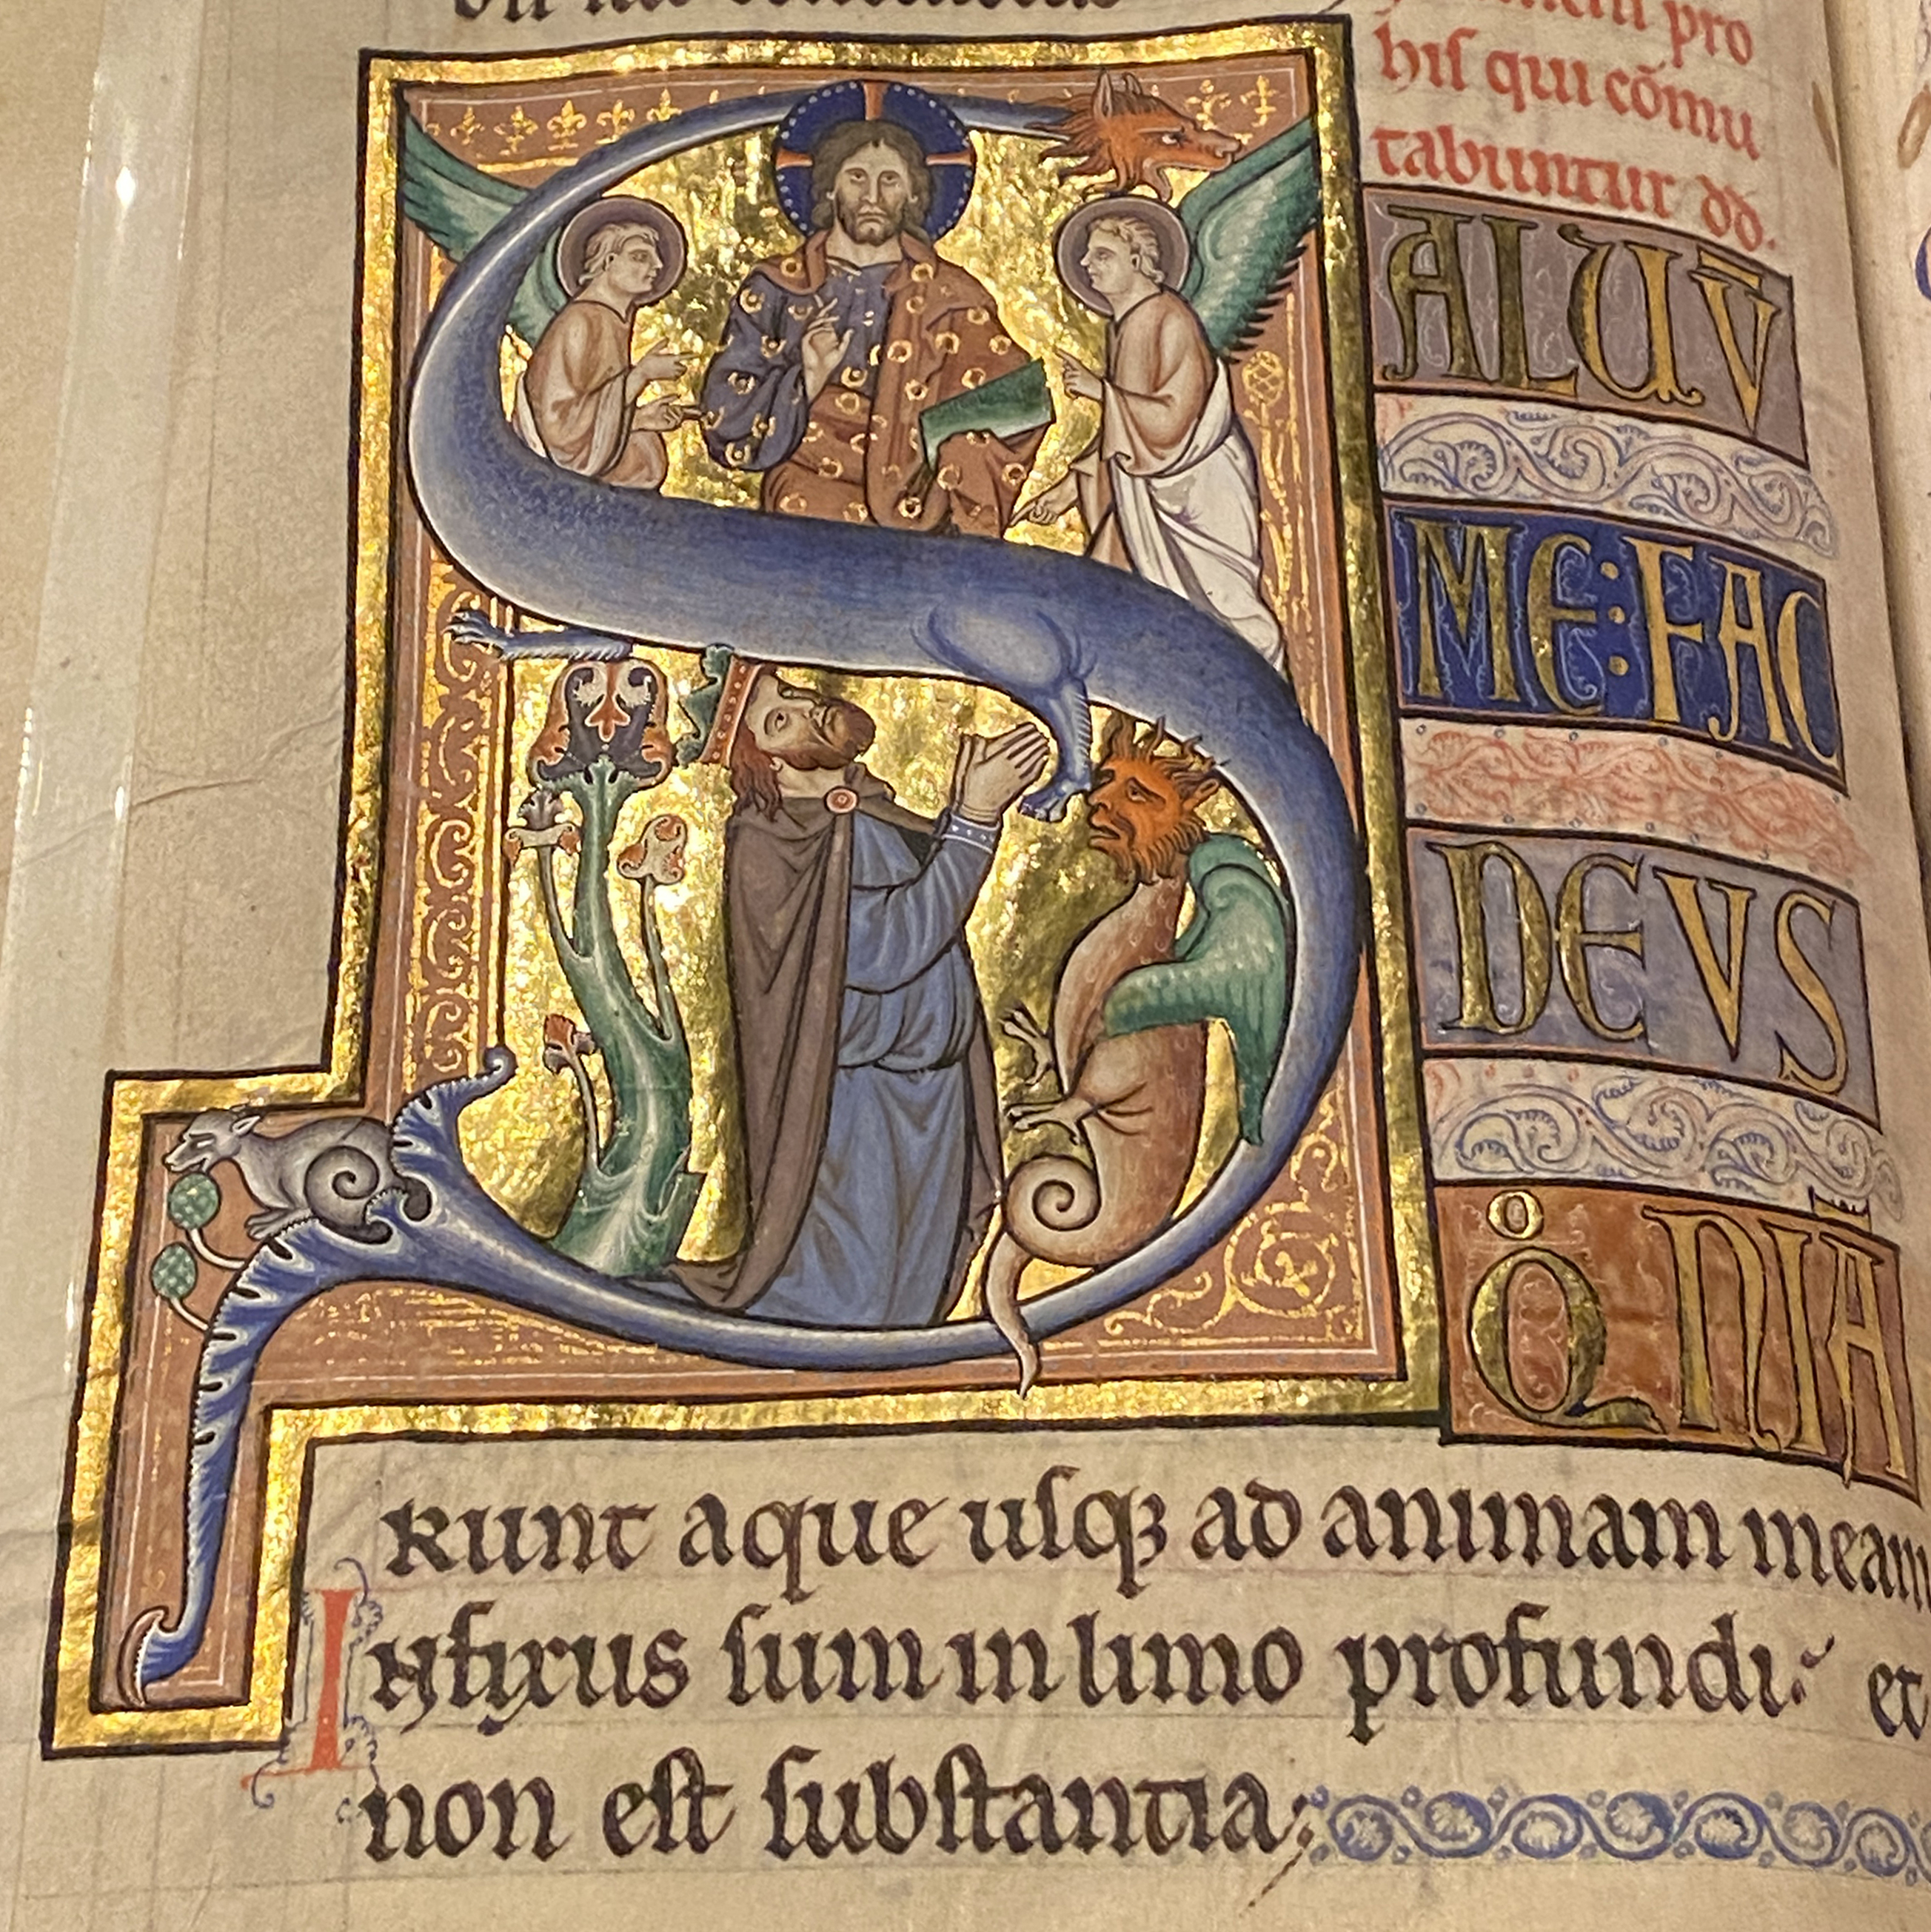 pro
hiſ qui cōmu
tabuntur dd.
S
ALUV̄
ME:FAC
DEVS
QºNIĀ
RUNT aque uſqꝫ ad animam meam
Infixus ſum in limo profundi: et
non eſt ſubſtantia;